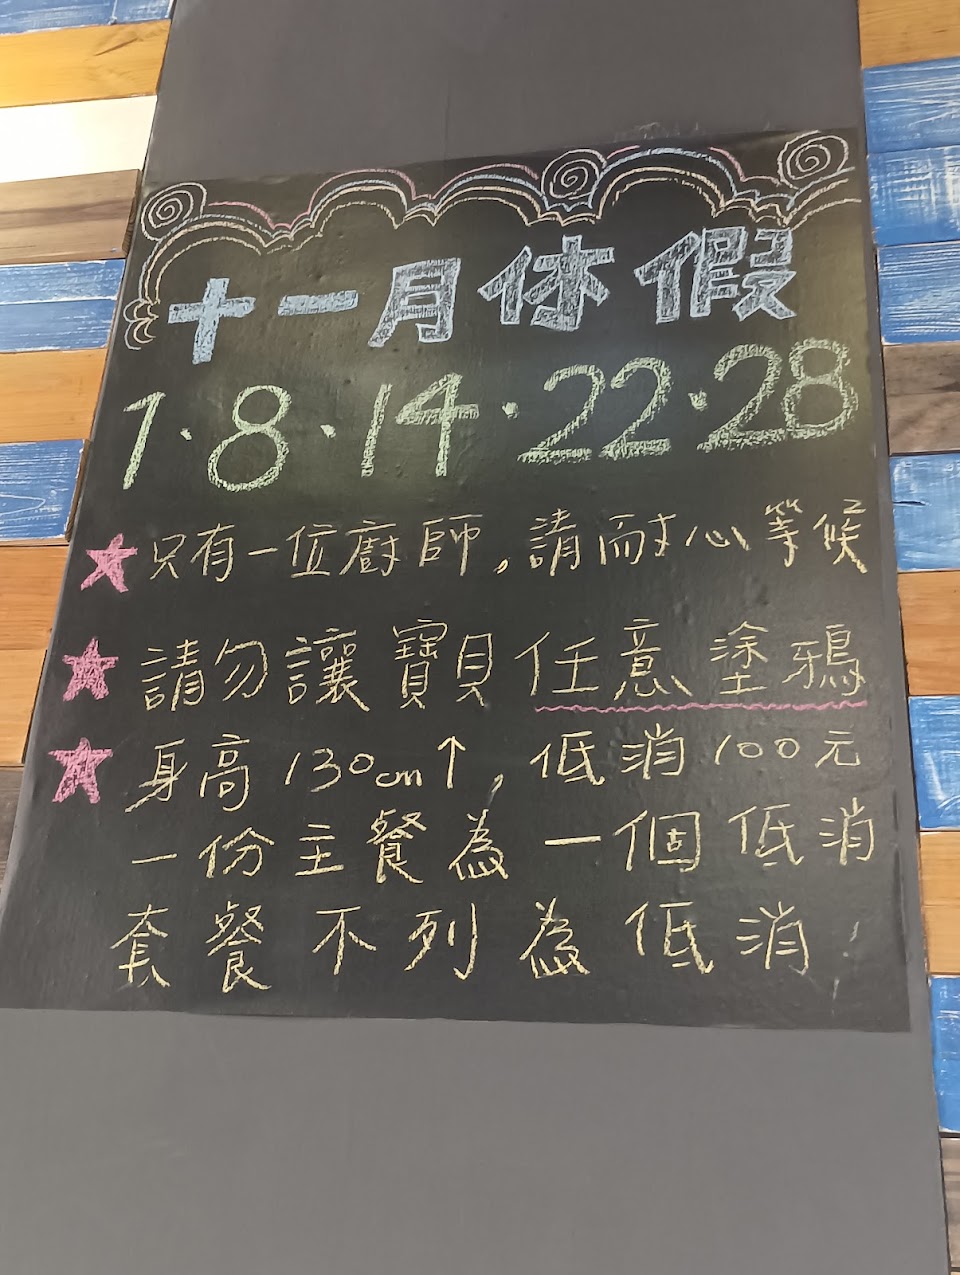 十一月休假
1.8.14.22.28
★只有一位廚師,請耐心等候
★請勿讓寶貝任意塗鴉
★身高130cm↑,低消100元
一份主餐為一個低消
套餐不列為低消